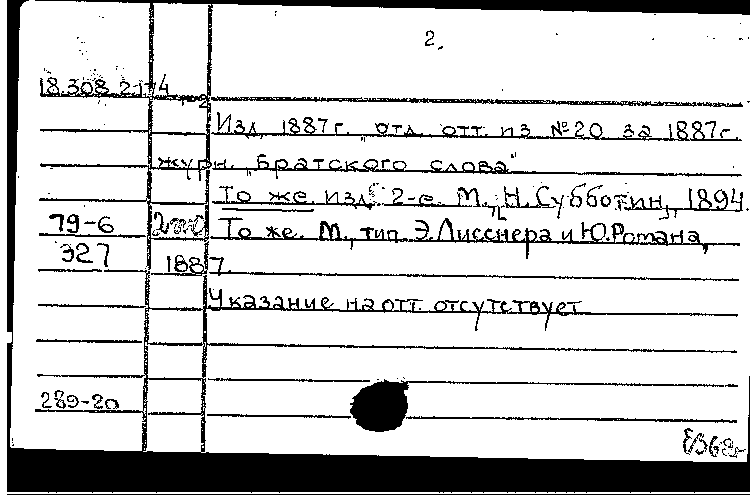 2.
18.308.2.174
2
Изд. 1887г. отд. отт. из №20 за 1887г.
журн. „Братского слова"
То же. изд. 2-е. М., [Н. Субботин], 1894.
79-6 То же. М., тип. Э. Лисснера и Ю. Романа,
327 1887.
Указание на отт. отсутствует
289-20